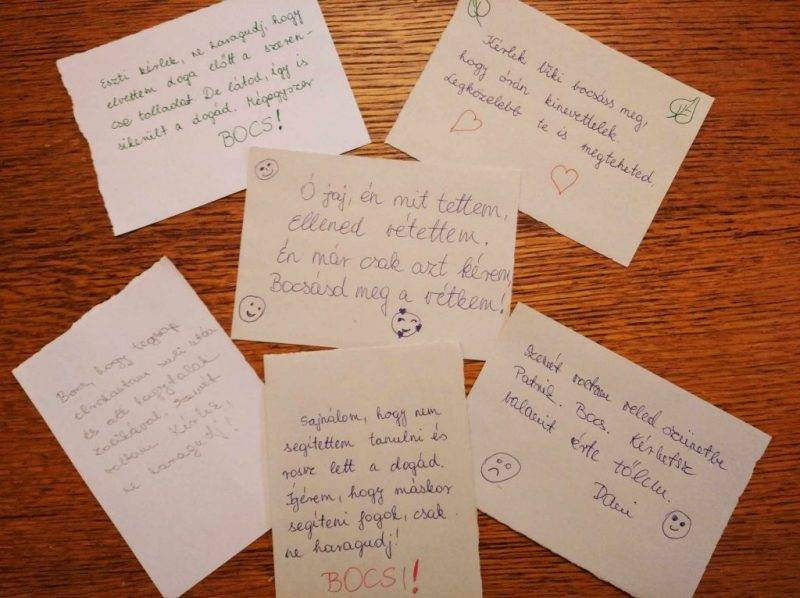 Eszti kérlek, ne haragudj, hogy
elvettem doga előtt a szeren-
cse tolladat. De látod, így is
sikerült a dogád. Mégegyszer
BOCS!
Kérlek Viki bocsáss meg,
hogy órán kinevettelek.
Legközelebb te is megteheted.
Ó jaj, én mit tettem,
Ellened vétettem.
Én már csak azt kérem,
Bocsásd meg a vétkem!
Bocs, hogy tegnap
elrohantam suli után
és ott hagytalak
Szemét
voltam. Kérlek,
ne haragudj!
Sajnálom, hogy nem
segítettem tanulni és
rossz lett a dogád.
Ígérem, hogy máskor
segíteni fogok, csak
ne haragudj!
BOCSI!
Szemét voltam veled szünetbe
Patrik. Bocs. Kérhetsz
valamit érte tőlem.
Dani